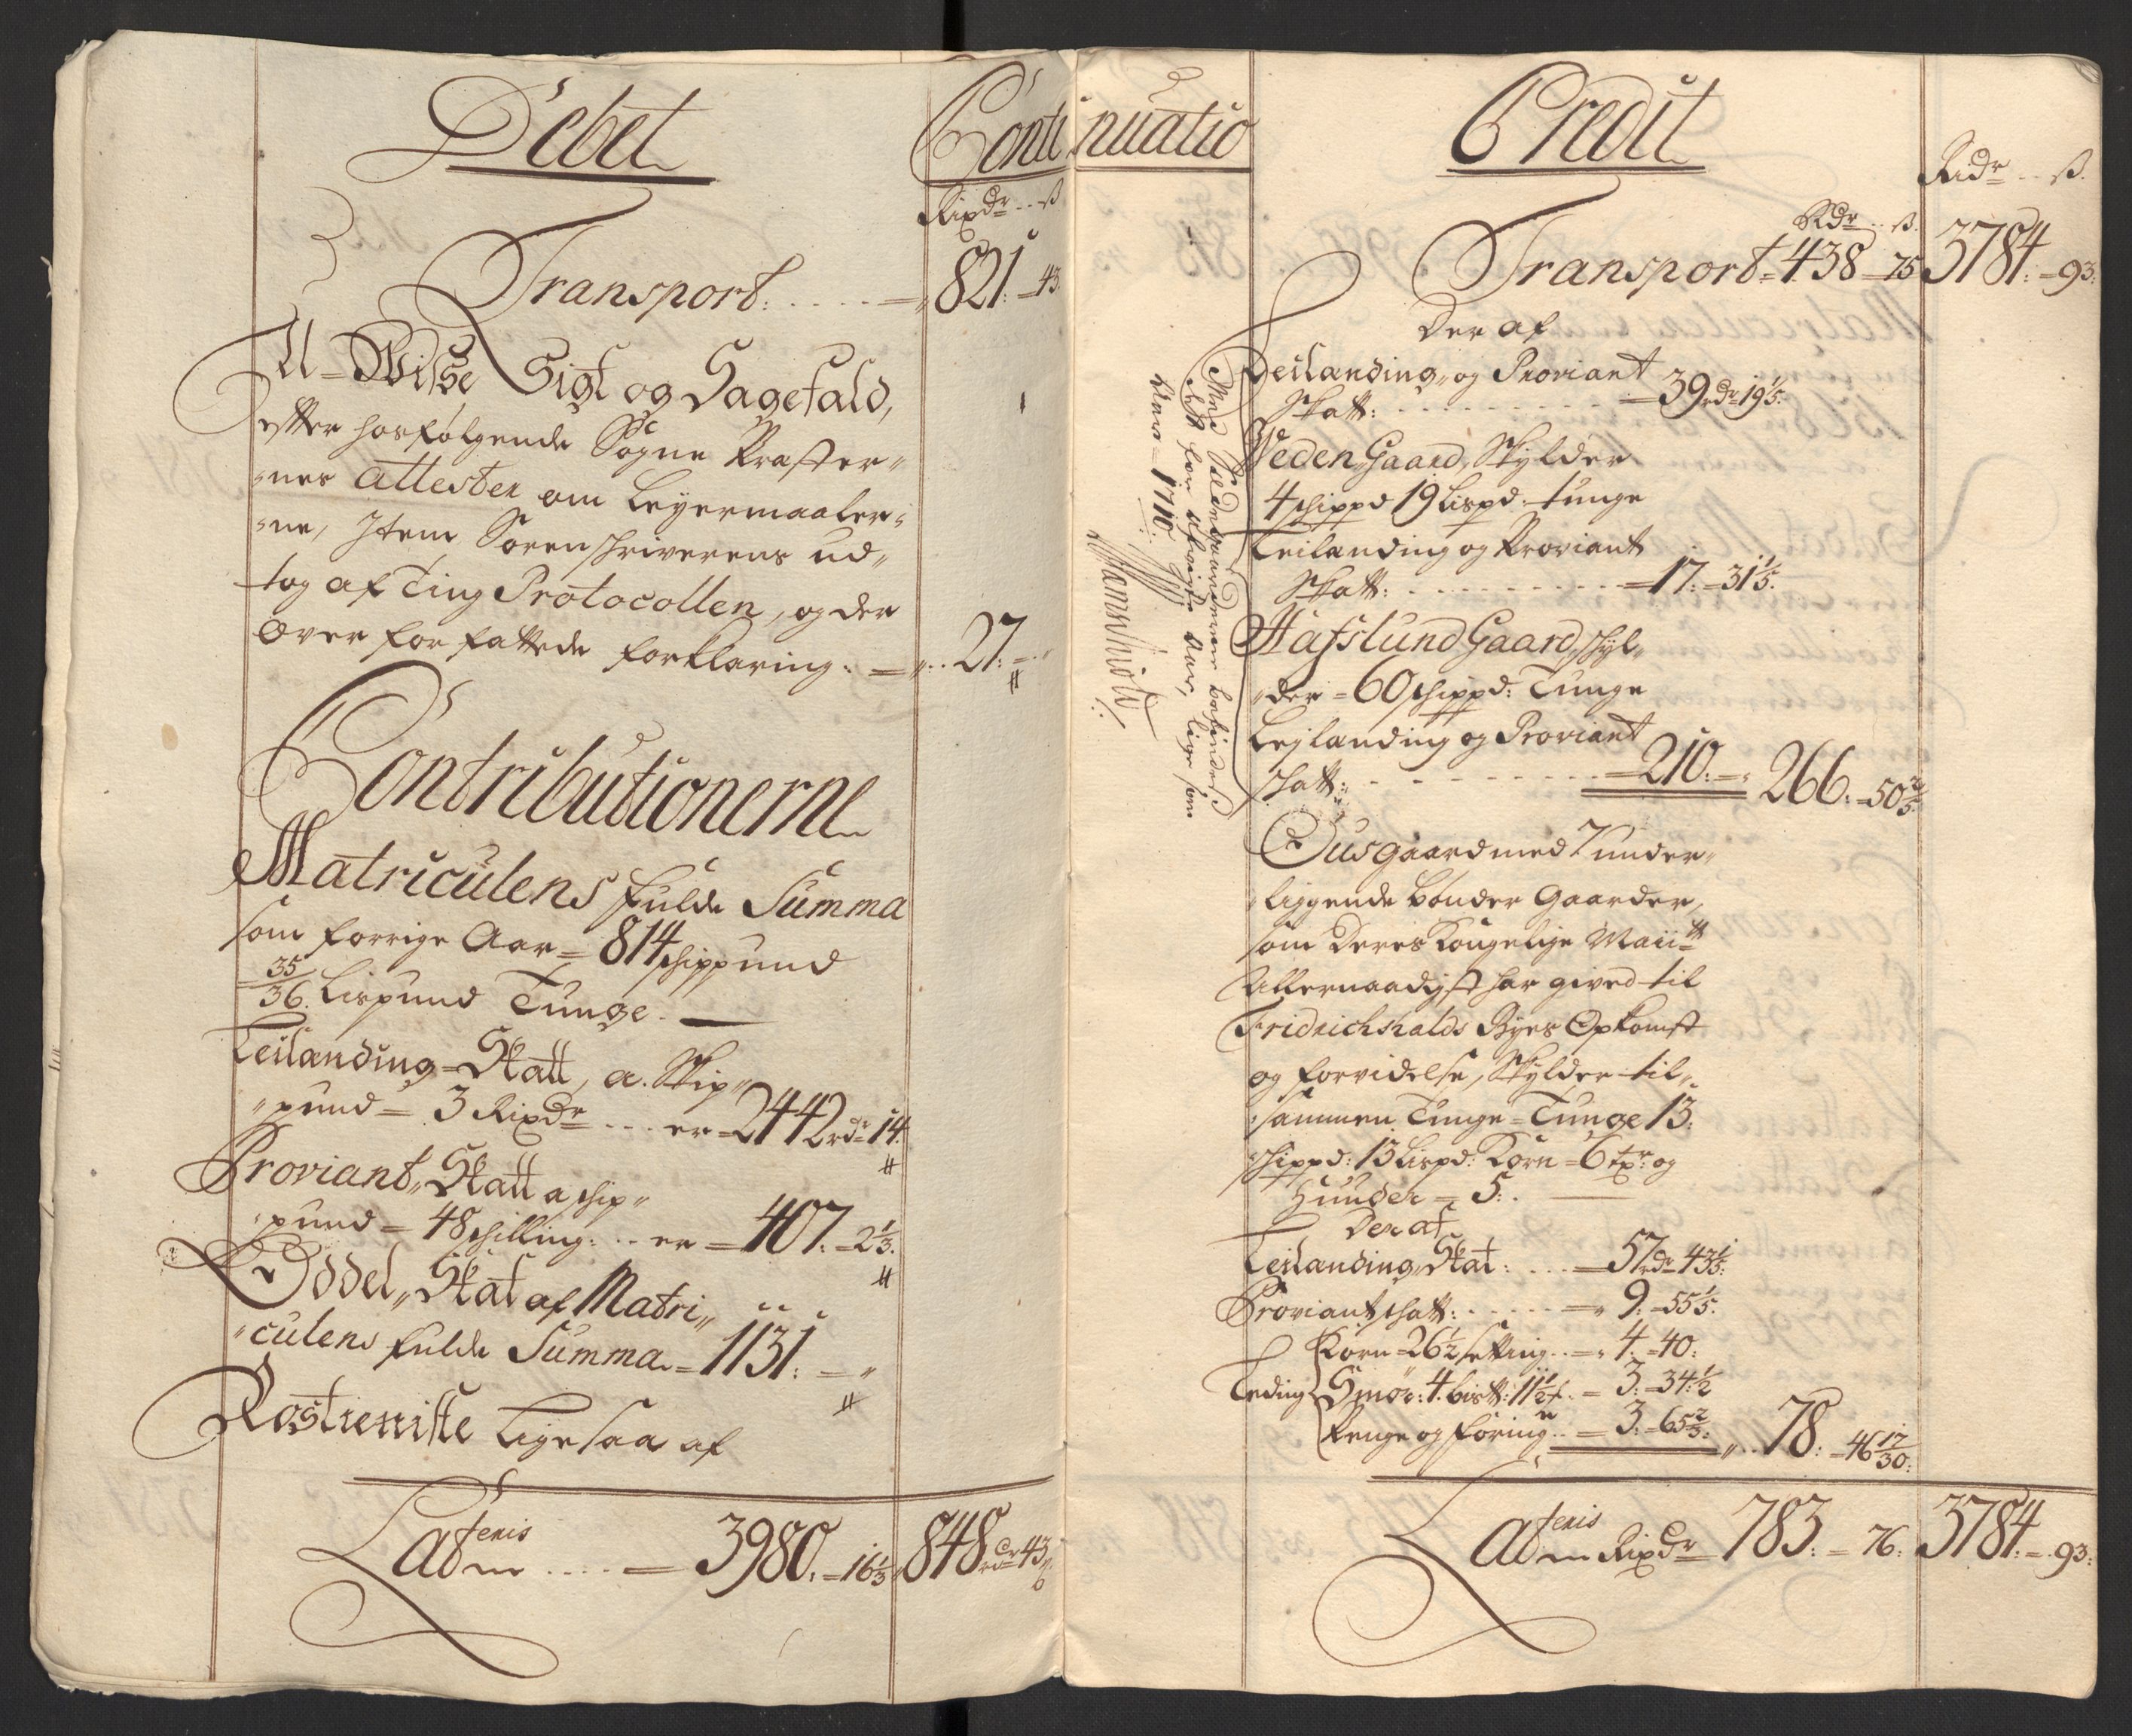 Debet
Continuatio
Rixdr ß
Transport: = 821: 43
U-Visse Sigt og Sagefald,
efter hosfølgende Sogne Præster-
nes attester om Leyermaaler-
ne, Item Sorenskriverens ud-
tog af Ting Protocollen, og der
over forfattede forklaring: = 27: =
Contributionerne
Matriculens fulde Summa
som forrige Aar = 814 schippund
35/36. Lispund Tunge.
Leilanding-Skatt, a. Skip-
pund = 3 Rixdr ... er = 2442 rdr 14.
Proviant-Skatt a schip-
pund = 48 schilling: .. er = 407: = 2 1/3.
Oddel-Skat af Matri-
culens fulde Summa = 1131: =
Rostieniste Lige saa af
Lateris
3980. = 16 1/3 848 rdr 43
Credit
Ridr ß.
Rdr ß.
Transport = 438 = 75 3784: = 93:
Der af
Leilanding og Proviant
Skatt: = 39 rdr 19 1/5.
Weden Gaard, Skylder
4 schippd 19 Lispd. tunge
Leilanding og Proviant
Skatt: = 17: = 31 1/5.
Hafslund Gaard, skyl-
der = 60 schippd: Tunge
Lejlanding og Proviant
skatt: = 210: = 266: = 50 2/5.
Med Saadbaarderen befindes
Rett for afvigte Aar, lige som
1710:
Ousgaard med 7 under-
liggende bønder Gaarder,
som Deres Kongelige Maiitt
Allernaadigst har gived til
Fridrichshalds Byes Opkomst
og forvidelse, Skylder til-
sammen Tunge = Tunge 13:
schippd: 13 Lispd: Korn = 6 txr: og
Huuder = 5:.
Der af
Leilanding Skat: ... = 57 rdr 43 1/5:
Proviant skatt: = 9: = 55 1/5.
Teding
Korn = 26 1/2 setting .. = 4: = 40:
Smør: 4. bistt: 11 1/2 .. = 3: = 34: 1/2
Penge og Foring .. = 3: = 65 2/3: 78: = 46 17/30:
Lateris Rixdr 783: = 76: 3784: = 93: